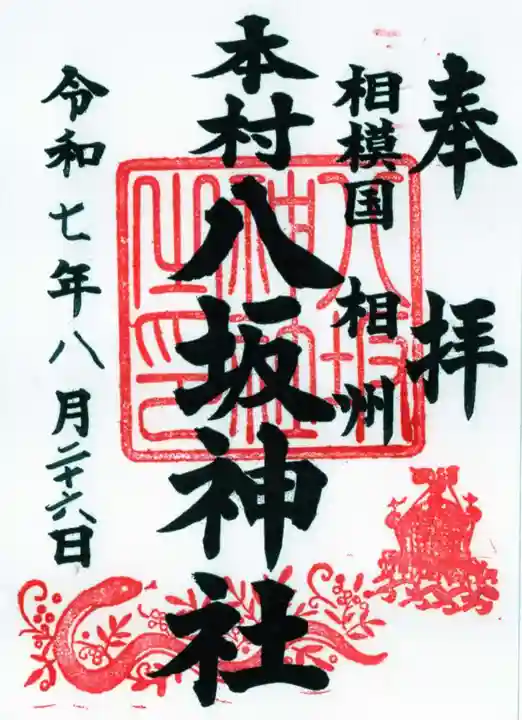 奉拝
相模国 相州
本村八坂神社
八坂神社之印
令和七年八月二十六日